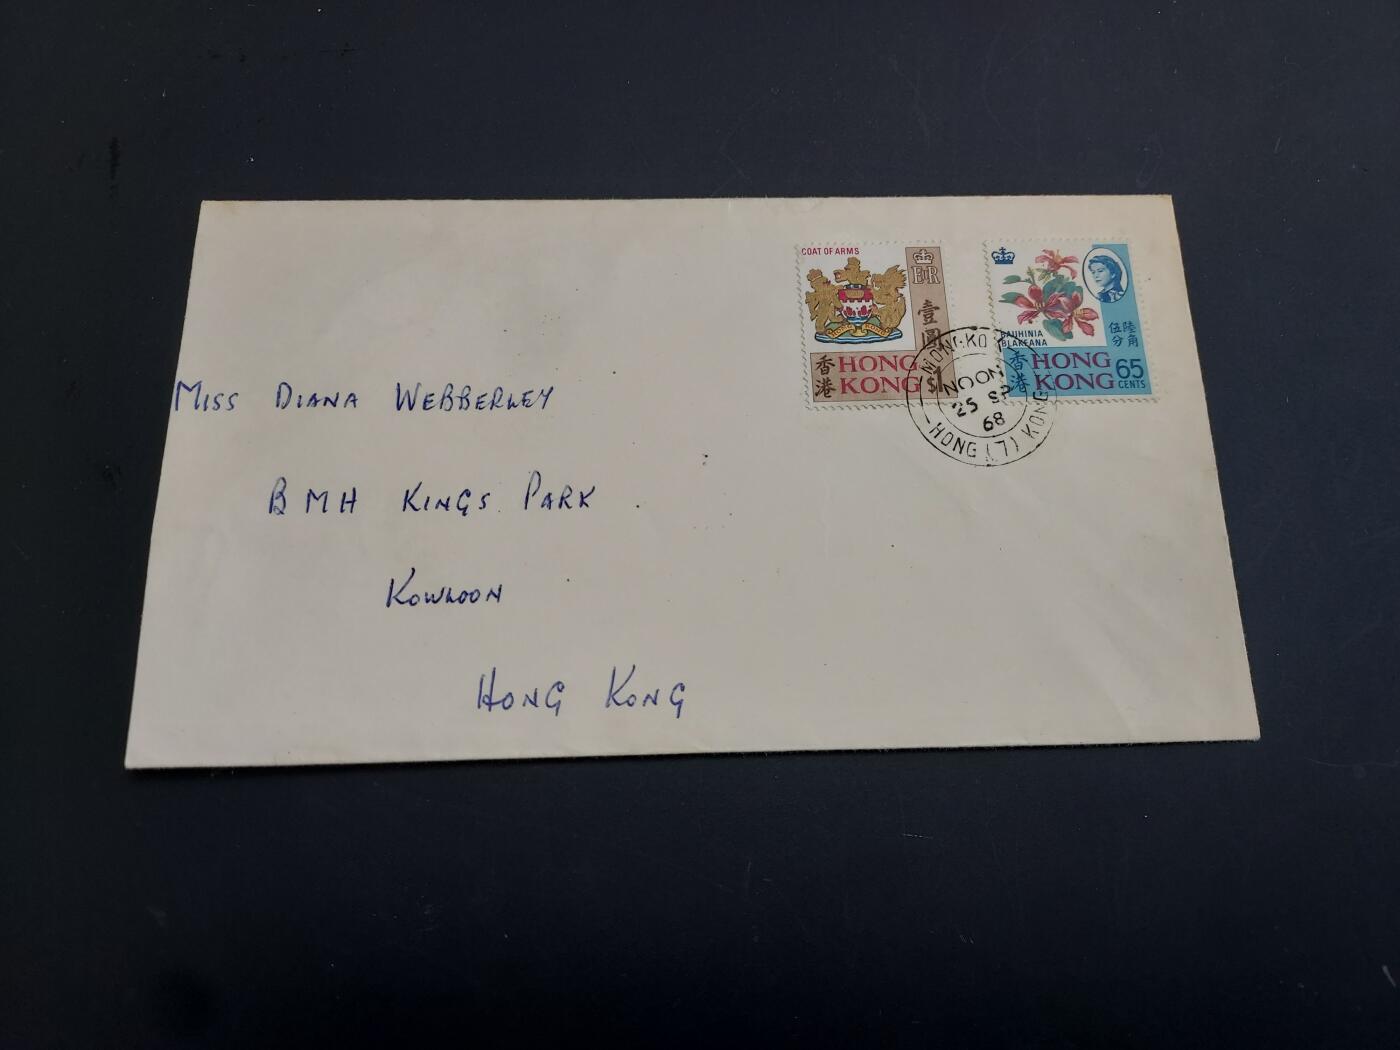 COAT OF ARMS
E II R
壹圓
香港
HONG
KONG
$1
BAUHINIA
BLAKEANA
陸角
伍分
香港
HONG
KONG
65
CENTS
MONGKOK
NOON
25 SP
68
HONG (7) KONG
MISS DIANA WEBBERLEY
BMH KINGS PARK
KOWLOON
HONG KONG